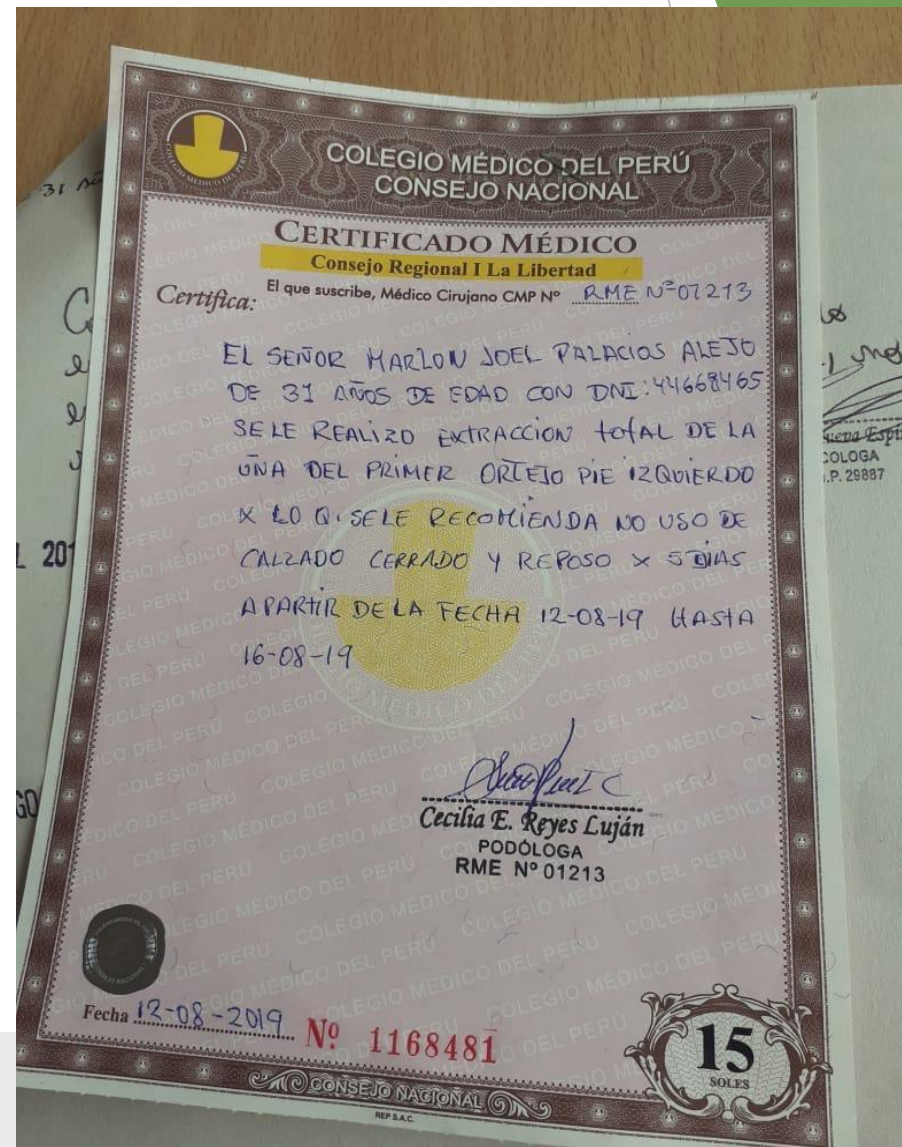 COLEGIO MÉDICO DEL PERÚ
CONSEJO NACIONAL
CERTIFICADO MÉDICO
Consejo Regional I La Libertad
Certifica: El que suscribe, Médico Cirujano CMP Nº RME Nº01213
EL SEÑOR MARLON JOEL PALACIOS ALEJO
DE 31 AÑOS DE EDAD CON DNI: 44668465
SE LE REALIZO EXTRACCION total DE LA
UÑA DEL PRIMER ORTEJO PIE IZQUIERDO
X LO Q. SE LE RECOMIENDA NO USO DE
CALZADO CERRADO Y REPOSO X 5 DIAS
APARTIR DE LA FECHA 12-08-19 HASTA
16-08-19
Cecilia E. Reyes Luján
PODÓLOGA
RME Nº 01213
Fecha 12-08-2019 Nº 1168481
15
SOLES
CONSEJO NACIONAL
REP S.A.C.
31
201
GO
COLOGA
.P. 29887